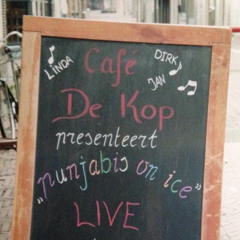 LINDA
Café
DIRK
JAN
De Kop
presenteert
"punjabis on ice"
LIVE